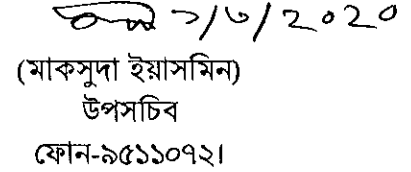 ১/৩/২০২০
(মাকসুদা ইয়াসমিন)
উপসচিব
ফোন-৯৫১১০৭২।